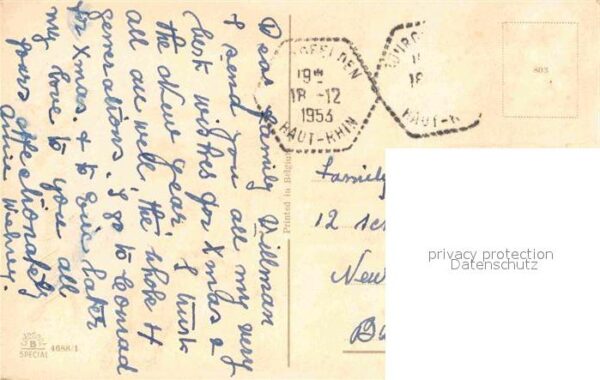 Dear Family Villman
I send you all my very
best wishes for Xmas &
the New Year. I trust
all are well, the whole 4
generations. I go to Conrad
for Xmas. & to Evie later
my love to you all
yours affectionately
Printed in Belgium
SPECIAL
4688/1
19H
18 -12
1953
HAUT-RHIN
18
HAUT-R
803
Family
12
New
privacy protection
Datenschutz